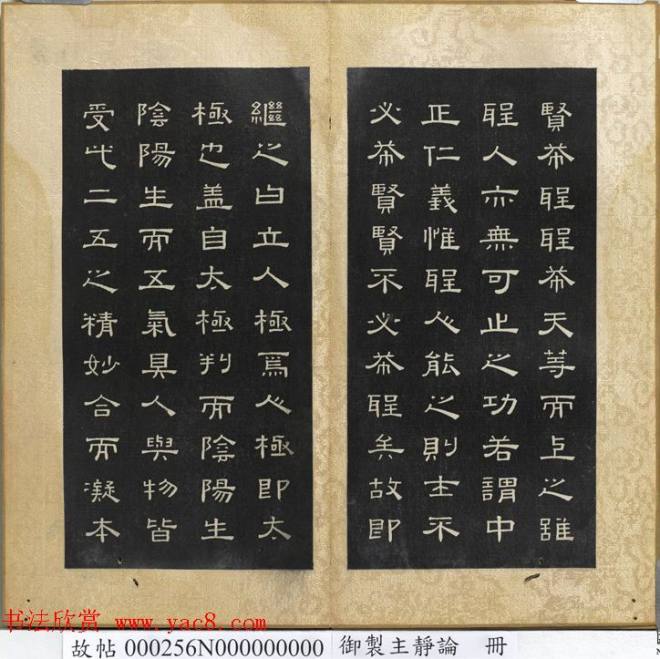 賢希聖聖希天等而上之雖
聖人亦無可止之功若謂中
正仁義惟聖人能之則士不
必希賢賢不必希聖矣故即
繼之曰立人極焉人極即太
極也蓋自太極判而陰陽生
陰陽生而五氣具人與物皆
受此二五之精妙合而凝本
书法欣赏 www.yac8.com
故帖 000256N000000000 御製主靜論 冊